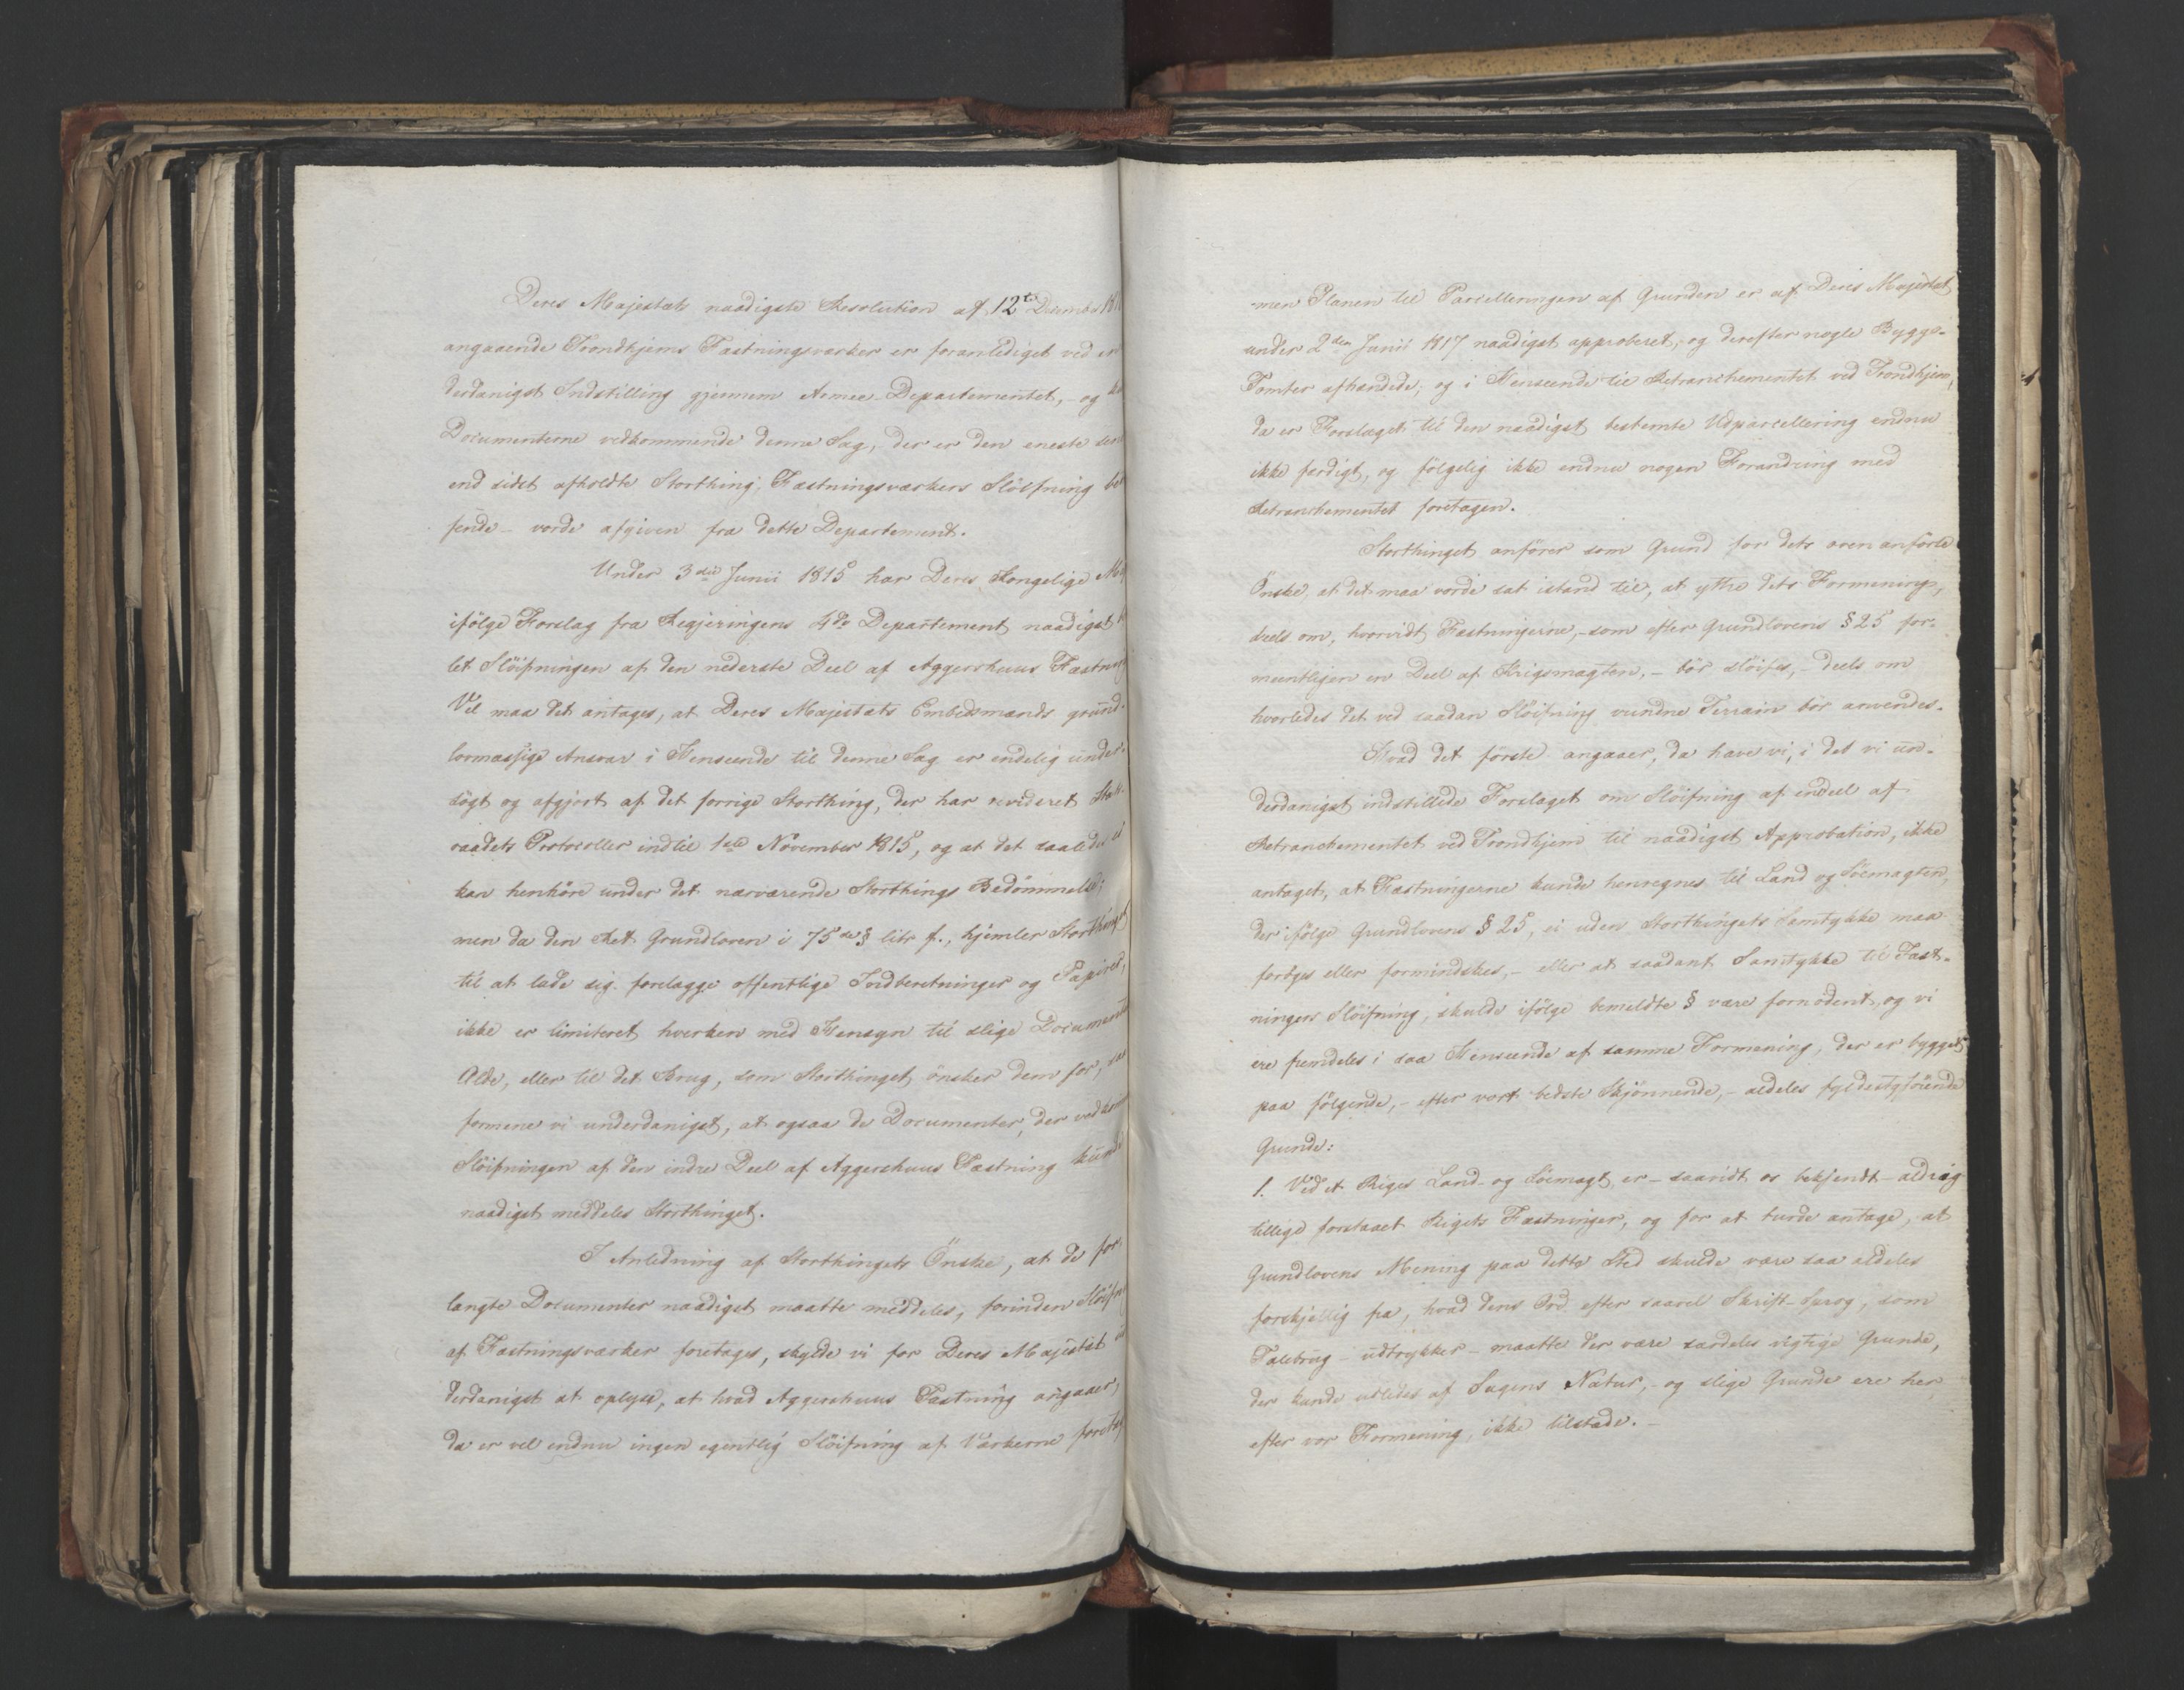 Deres Majestæts naadigste Resolution af 12te December
angaaende Trondhjems Fæstningsværker er foranlediget ved en
derdanigst Indstilling gjennem Armee-Departementet, - og
Documenterne vedkommende denne Sag, der er den eneste
end sidst afholdte Storthing, Fæstningsværkers Slöifning
fende - vorde afgiven fra dette Departement.
Under 3die Junii 1815 har Deres Kongelige
ifölge Forslag fra Regjeringens 4de Departement naadigst
let Slöifningen af den nederste Deel af Aggershuus Fæstning
Vel maa det antages, at Deres Majestæts Embedsmænds grund-
lovmæssige Ansvar i Henseende til denne Sag er endelig under-
sögt og afgjort af det forrige Storthing, der har revideret Stats-
raadets Protocoller indtil 1ste November 1815, og at det saaledes ei
kan henhöre under det nærværende Storthings Bedömmelse;
men da den Ret Grundloven i 75de § litr f., hjemler Storthinget
til at lade sig forelægge offentlige Indberetninger og Papirer,
ikke er limiteret hverken med Hensyn til slige Documenters
Alde, eller til det Brug, som Storthinget önsker dem for, saa
formene vi underdanigst, at ogsaa de Documenter, der vedkomme
Slöifningen af den indre Deel af Aggershuus Fæstning kunde
naadigst meddeles Storthinget.
I Anledning af Storthingets Önske, at de for-
langte Documenter naadigst maatte meddeles, forinden
af Fæstningsværker foretages, skylde vi for Deres Majestæt
derdanigst at oplyse, at hvad Aggershuus Fæstning angaaer,
da er vel endnu ingen egentlig Slöifning af Værkerne
men Planen til Parcelleringen af Grunden er af Deres Majestæt
under 2den Junii 1817 naadigst approberet, og derefter nogle Bygge-
Tomter afhændede; og i Henseende til Retranchementet ved Trondhjem,
da er Forslaget til den naadigst bestemte Udparcellering endnu
ikke færdigt, og fölgelig ikke endnu nogen Forandring med
Retranchementet foretagen.
Storthinget anförer som Grund for dets oven anförte
Önske, at det maa vorde sat istand til, at yttre dets Formening,
deels om, hvorvidt Fæstningerne, - som efter Grundlovens § 25 for-
meentligen en Deel af Krigsmagten, - bör slöifes, - deels om
hvorledes det ved saadan Slöifning vundne Terrain bör anvendes.
Hvad det förste angaaer, da have vi, i det vi un-
derdanigst indstillede Forslaget om Slöifning af endeel af
Retranchementet ved Trondhjem til naadigst Approbation, ikke
antaget, at Fæstningerne kunde henregnes til Land og Söemagten,
der ifölge Grundlovens § 25, ei uden Storthingets Samtykke maa
foröges eller formindskes, - eller at saadant Samtykke til Fæst-
ningers Slöifning, skulde ifölge bemeldte § være fornödent, og vi
ere fremdeles i saa Henseende af samme Formening, der er bygget
paa fölgende, - efter vort bedste Skjönnende, - aldeles fyldestgjörende
Grunde:
1. Ved et Riges Land- og Söemagt er - saavidt os bekjendt - aldrig
tillige forstaaet Rigets Fæstninger, og for at turde antage, at
Grundlovens Mening paa dette Sted skulde være saa aldeles
forskjellig fra, hvad dens Ord efter saavel Skrift-Sprog, som
Talebrug - udtrykker - maatte der være særdeles vigtige Grunde,
der kunde udledes af Sagens Natur, - og slige Grunde ere her
efter vor Formening, ikke tilstæde. -